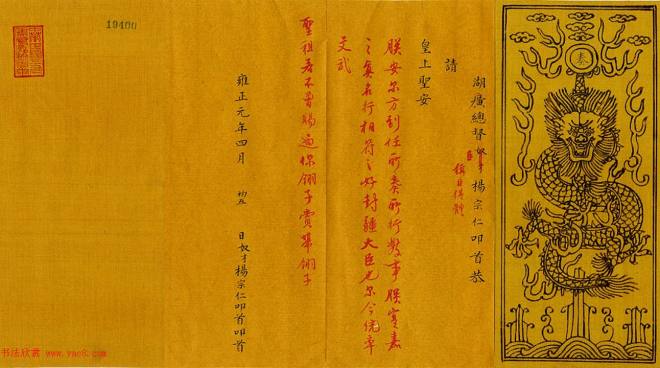 奏
湖廣總督奴才楊宗仁叩首恭
臣
稱臣得體
請
皇上聖安
朕安尔方到任所奏所行数事朕實嘉
之
名行相符
好封疆大臣
尔今統率
文武
聖祖若不曾賜過你翎子賞單翎子
雍正元年四月 初五 日奴才楊宗仁叩首叩首
19400
书法欣赏 www.yac8.com